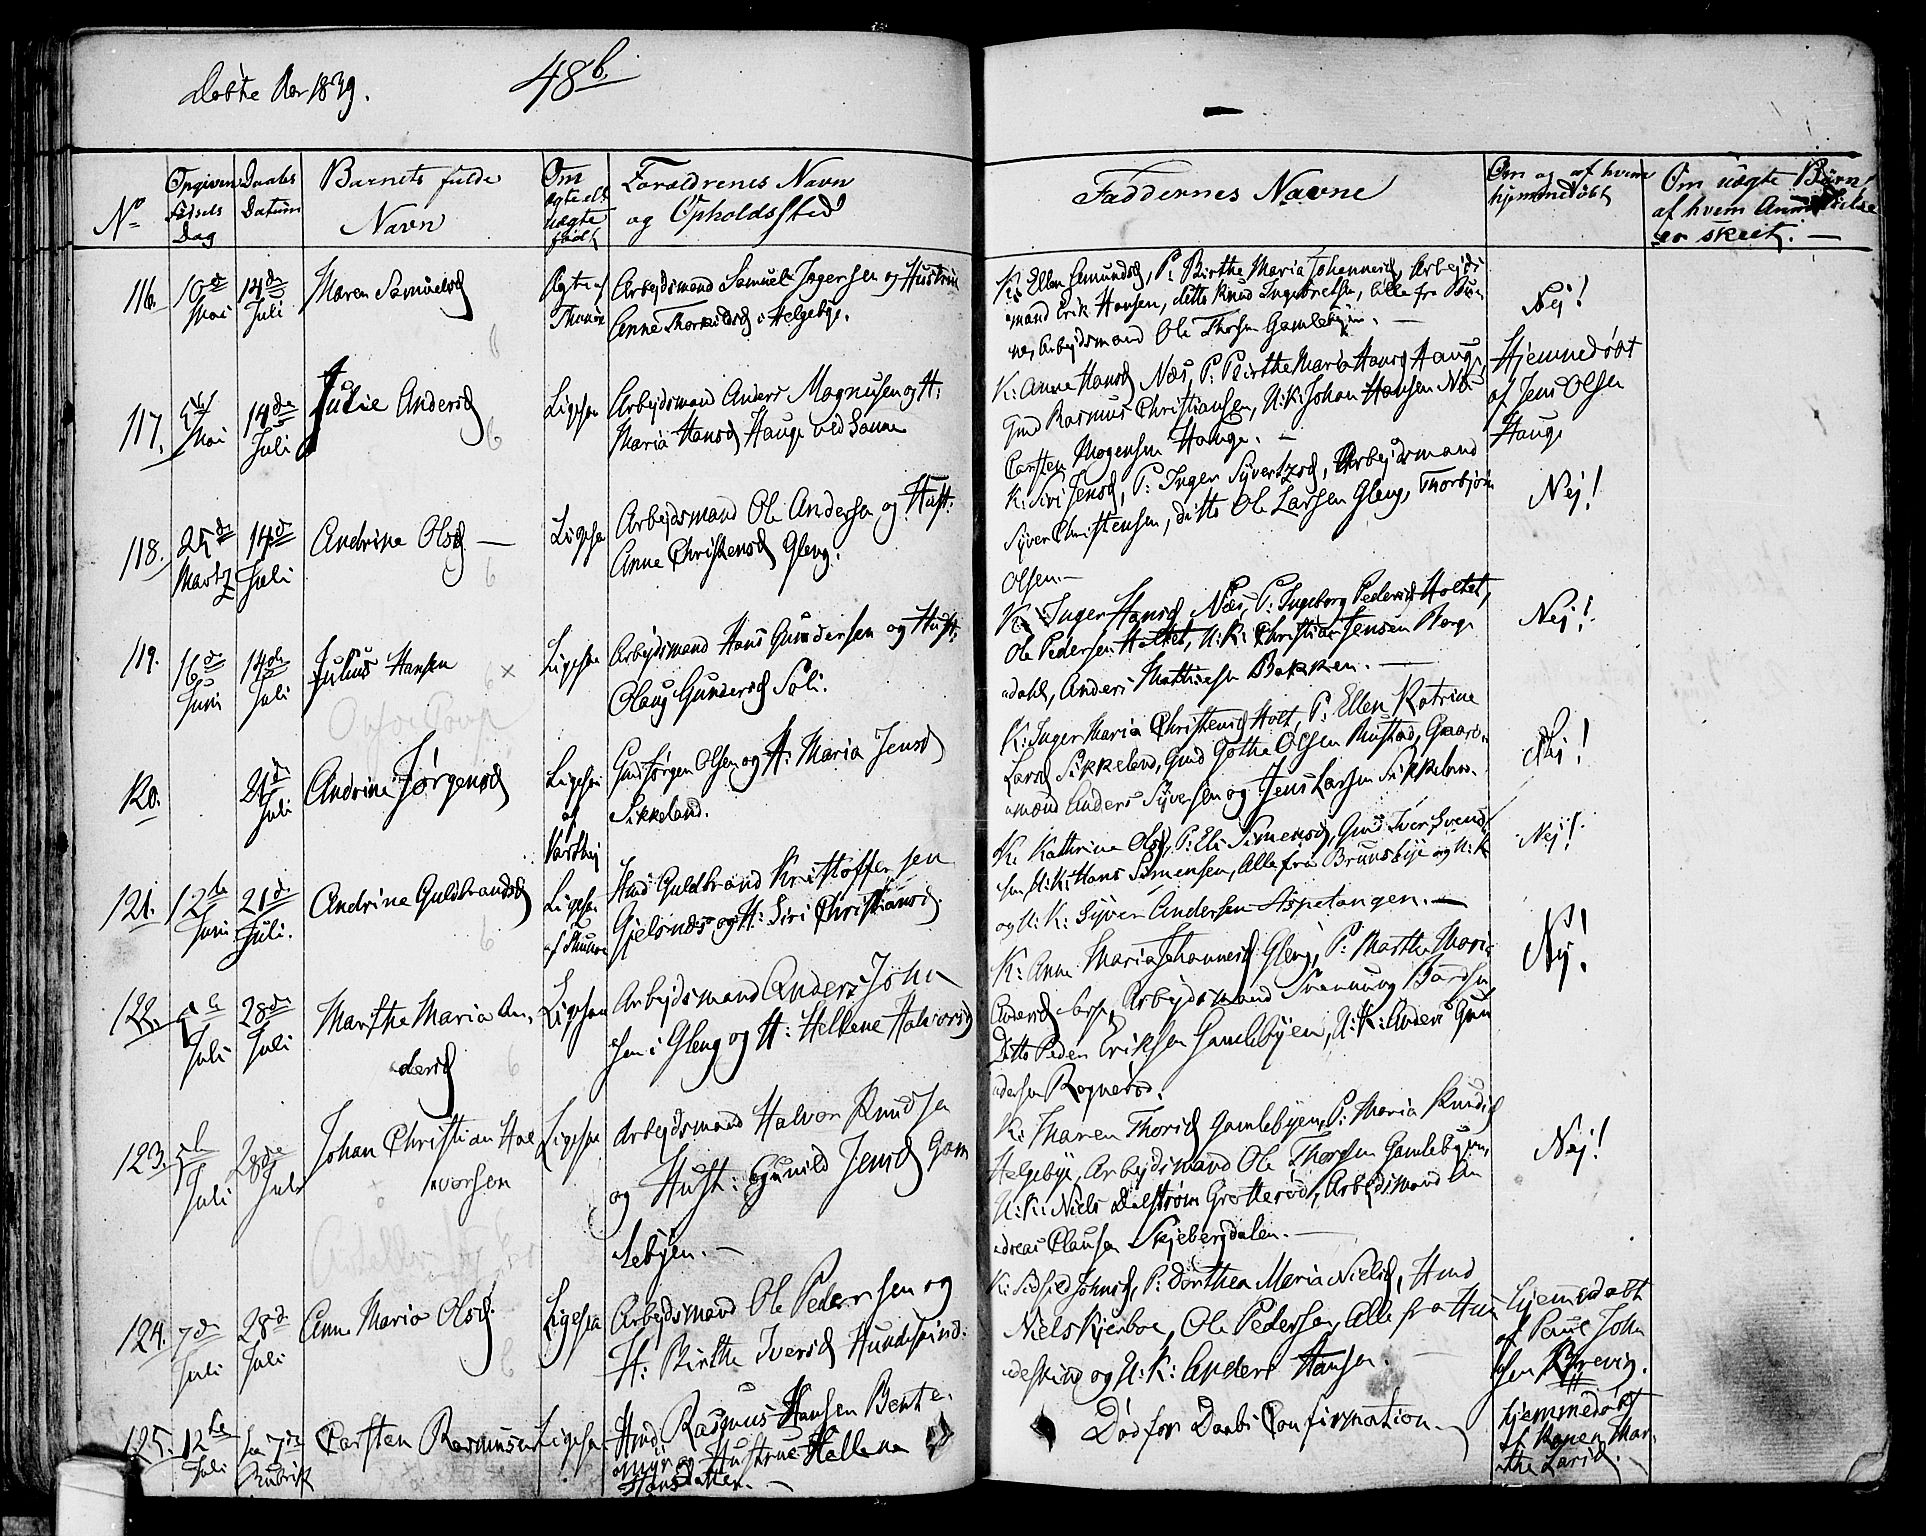 Døbte Aar 1839.
48b.
No
Opgiven Fødsels Dag
Daabs Datum
Barnets fulde Navn
Om ægte ell. uægte født
Forældrenes Navn og Opholdssted
Faddernes Navne
Om og af hvem hjemmedøbt
Om uægte Børn, af hvem Anmeldelse er skeet. —
116. 10de Mai
14de Juli
Maren Samuelsd
Ægte af
Arbejdsmand Samuel Ingersen og Hustrue
Anne Thorkildsd i Helgebye.
K: Ellen Gemundsd, P: Birthe Maria Johannesd, Arbejds
mand Erik Hansen, ditto Knud Ingebretsen, Alle fra
Arbejdsmand Ole Thorsen Gamlebyen. —
Nej!
117. Mai
14de Juli
Julie Andersd
Ligesaa
Arbejdsmand Anders Mognusen og H:
Maria Hansd Hauge ved Sanne
K: Anne Hansd Næs, P: Birthe Maria Hansd Hauge,
Gmd Rasmus Christiansen, U:K: Johan Hansen Næs
Carsten Mogensen Hauge. —
Hjemmedøbt
af Jens Olsen
Hauge
118. 25de Martz
14de Juli
Andrine Olsd —
Ligesaa
Arbejdsmand Ole Andersen og Hust:
Anne Christensd Gleng.
K: Siri Jensd, P: Inger Syvertsd, Arbejdsmand
Syver Christensen, ditto Ole Larsen Gleng, Thorbjørn
Olsen. —
Nej!
119. 16de Juni
14de Juli
Julius Hansen
Ligesaa
Arbejdsmand Hans Gundersen og Hust:
Olaug Gundersd Soli.
K: Inger Hansd Næs, P: Ingeborg Pedersd Holtet,
Ole Pedersen Holtet, U:K: Christian Jensen Borge
dahl, Anders Mathisen Bakken. —
Nej!
120.
21de Juli
Andrine Jørgensd
Ligesaa
af
Gmd Jørgen Olsen og H: Maria Jensd
Sikkeland.
K: Inger Maria Christensd Holt, P: Ellen Katrine
Larsd Sikkeland, Gmd Gothe Olsen Rustad, Gaard
mand Anders Syversen og Jens Larsen Sikkeland.
Nej!
121. 12te Juni
21de Juli.
Andrine Guldbrandsd
Ligesaa
Hmd Guldbrand Kristoffersen
Gjelsnæs og H: Siri Christiansd.
K: Kathrine Olsd, P: Eli Simensd, Gmd Iver Svend
sen U:K: Hans Simensen, Alle fra Brunsbye og U:K
og U:K: Syver Andersen Aspetangen. —
Nej!
122. Juli
28de Juli
Marthe Maria An,
dersd
Ligesaa
Arbejdsmand Anders John
sen i Gleng og H: Hellene Halvorsd
K: Anne Maria Johannesd Gleng, P: Marthe Maria
Andersd Arbejdsmand Svenning Bårdsen
Ditto Peder Eriksen Gamlebyen, U:K: Anders Gun
dersen Rognerød.
Nej!
123. Juli
28de Juli
Johan Christian Hal
vorsen
Ligesaa
Arbejdsmand Halvor Knudsen
og Hust: Gunild Jensd Gam
lebyen. —
K: Maren Thorisd Gamlebyen, P: Maria Knudsd
Helgebye, Arbejdsmand Ole Thorsen Gamlebyen,
U:K: Niels Dalstrøm Grotterød, Arbejdsmand An
dreas Clausen Skjebergdalen. —
Nej!
124. 7de Juli
28de Juli
Anne Maria Olsd.
Ligesaa
Arbejdsmand Ole Pedersen og
H: Birthe Iversd Hundskind.
K: Sidsel Johnsd, P: Dorthea Maria Nielsd, Hmd
Niels Kjerboe, Ole Pedersen, Alle fra Hun
deskind og U:K: Anders Hansen. —
hjemmedøbt
af Paul John
sen Brevig.
125. 12te Juli
Rubrik
Carsten Rasmusen
Ligesaa
Hmd Rasmus Hansen Bente.
myr og Hustrue Hellena
Hansdatter. —
Død før Daabs Confirmation. —
hjemmedøbt
af Karen Mar,
the Larsd.